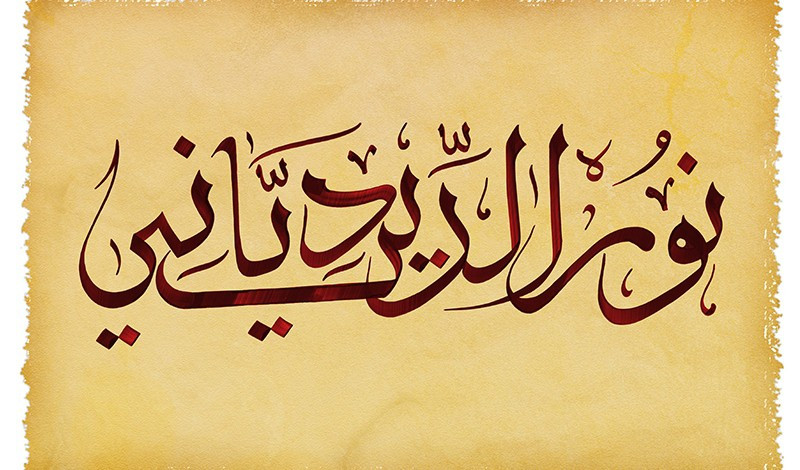 نُور الدِّين دِيَّانِي